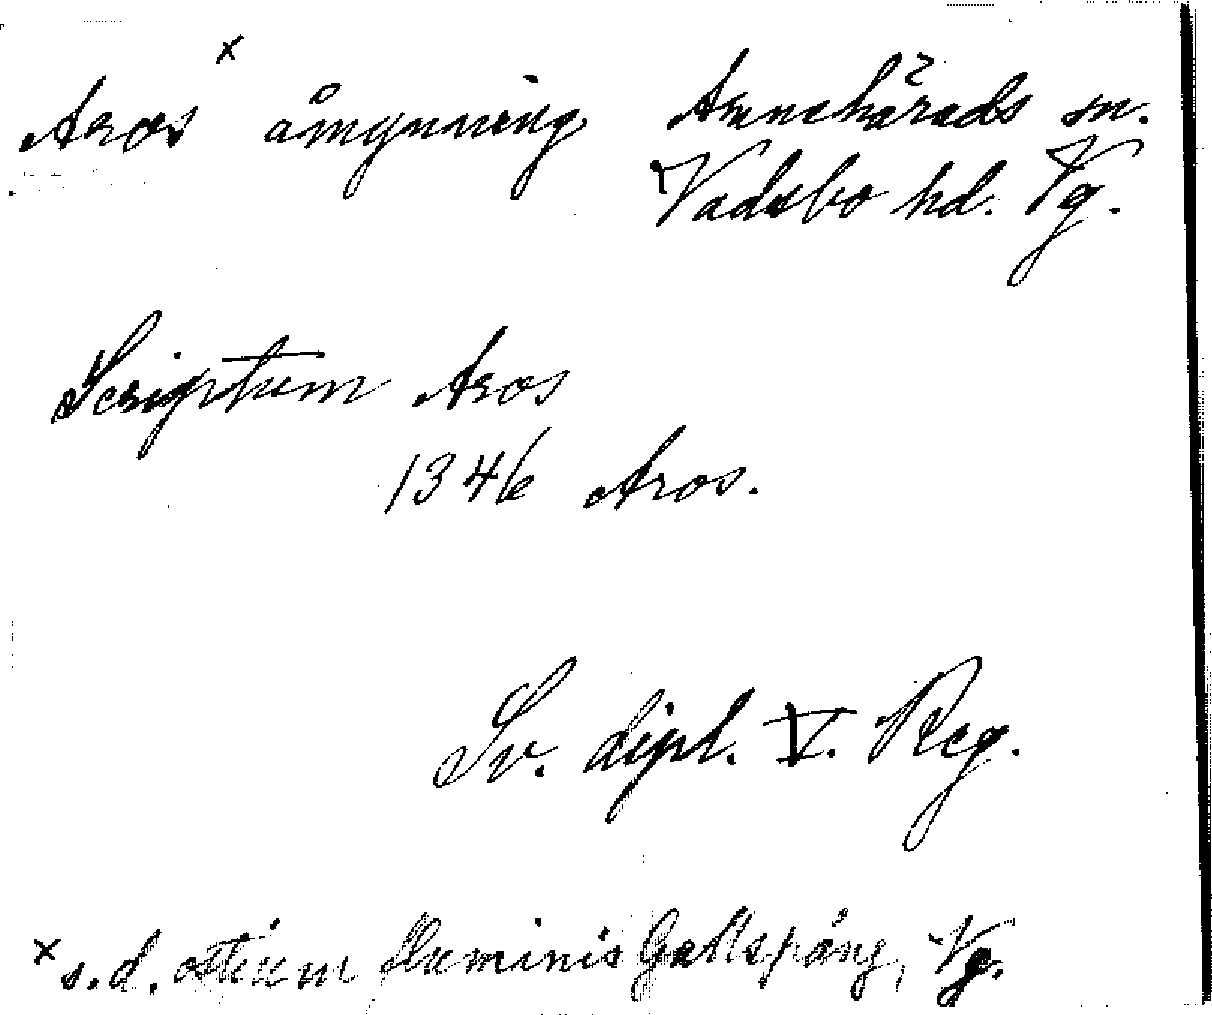 Aros× åmynning Amnehärads sn.
Vadsbo hd. Vg.
Scriptum Aros
1346 Aros.
Sv. dipl. V. Reg.
× s.d. ostium fluminis Gullspång, Vg.